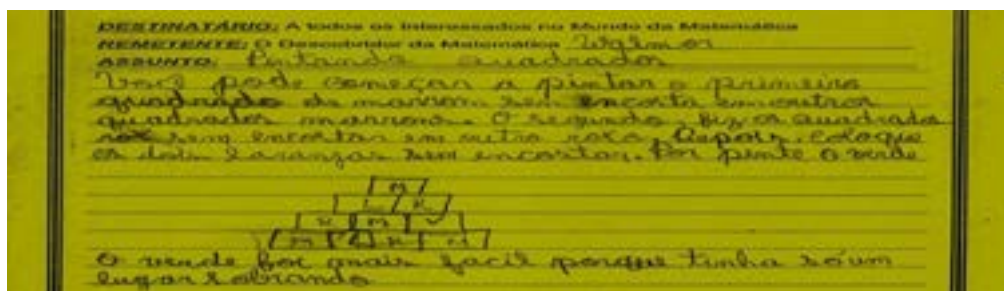 DESTINATÁRIO: A todos os interessados no Mundo da Matemática
REMETENTE: O Descobridor da Matemática
ASSUNTO: Pintando quadrados
Você pode começar a pintar o primeiro
quadrado de marrom sen encosta em outros
quadrados marrons. O segundo, fiz os quadrados
roxo sem encostar em outro roxo. Depois, coloque
os dois laranjas sem encostar. Por pinte o verde
M
L R
R M V
M L R M
O verde foi mais facil porque tinha só um
lugar sobrando